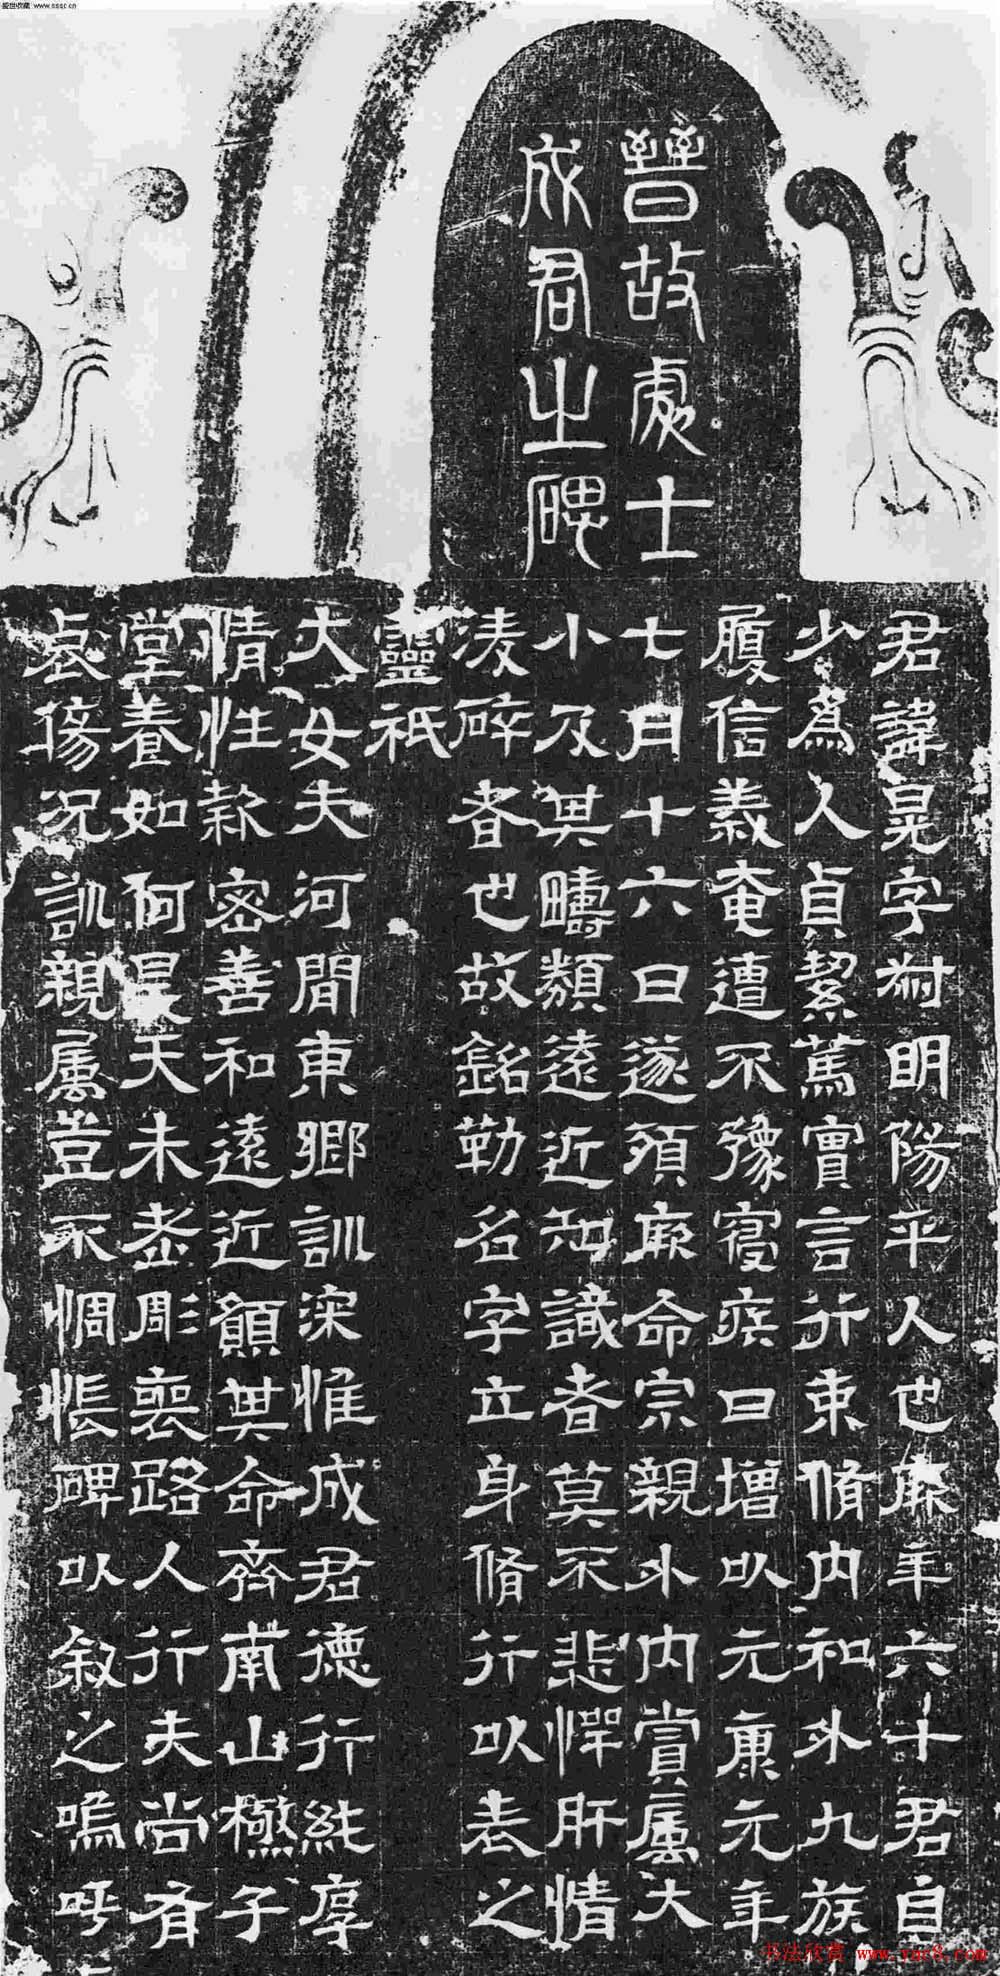 晉故處士
成君之碑
君諱晃字叔明陽平人也厥年六十君自
少爲人貞絜篤實言行束脩内和外九族
履信義奄遭不豫寑疾日增以元康元年
七月十六日遂殞厥命宗親外内賞屬大
小及其疇類遠近知識者莫不悲惲肝情
凌碎者也故銘勒名字立身脩行以表之
靈祇
大女夫河間東鄉訓深惟成君德行純厚
情性款密善和遠近願其命齊南山極子
堂養如何昊天未耋彫喪路人行夫尚有
哀傷況訓親屬豈不惆悵碑以叙之嗚呼
盛世收藏 www.sssc.cn
书法欣赏 www.yac8.com